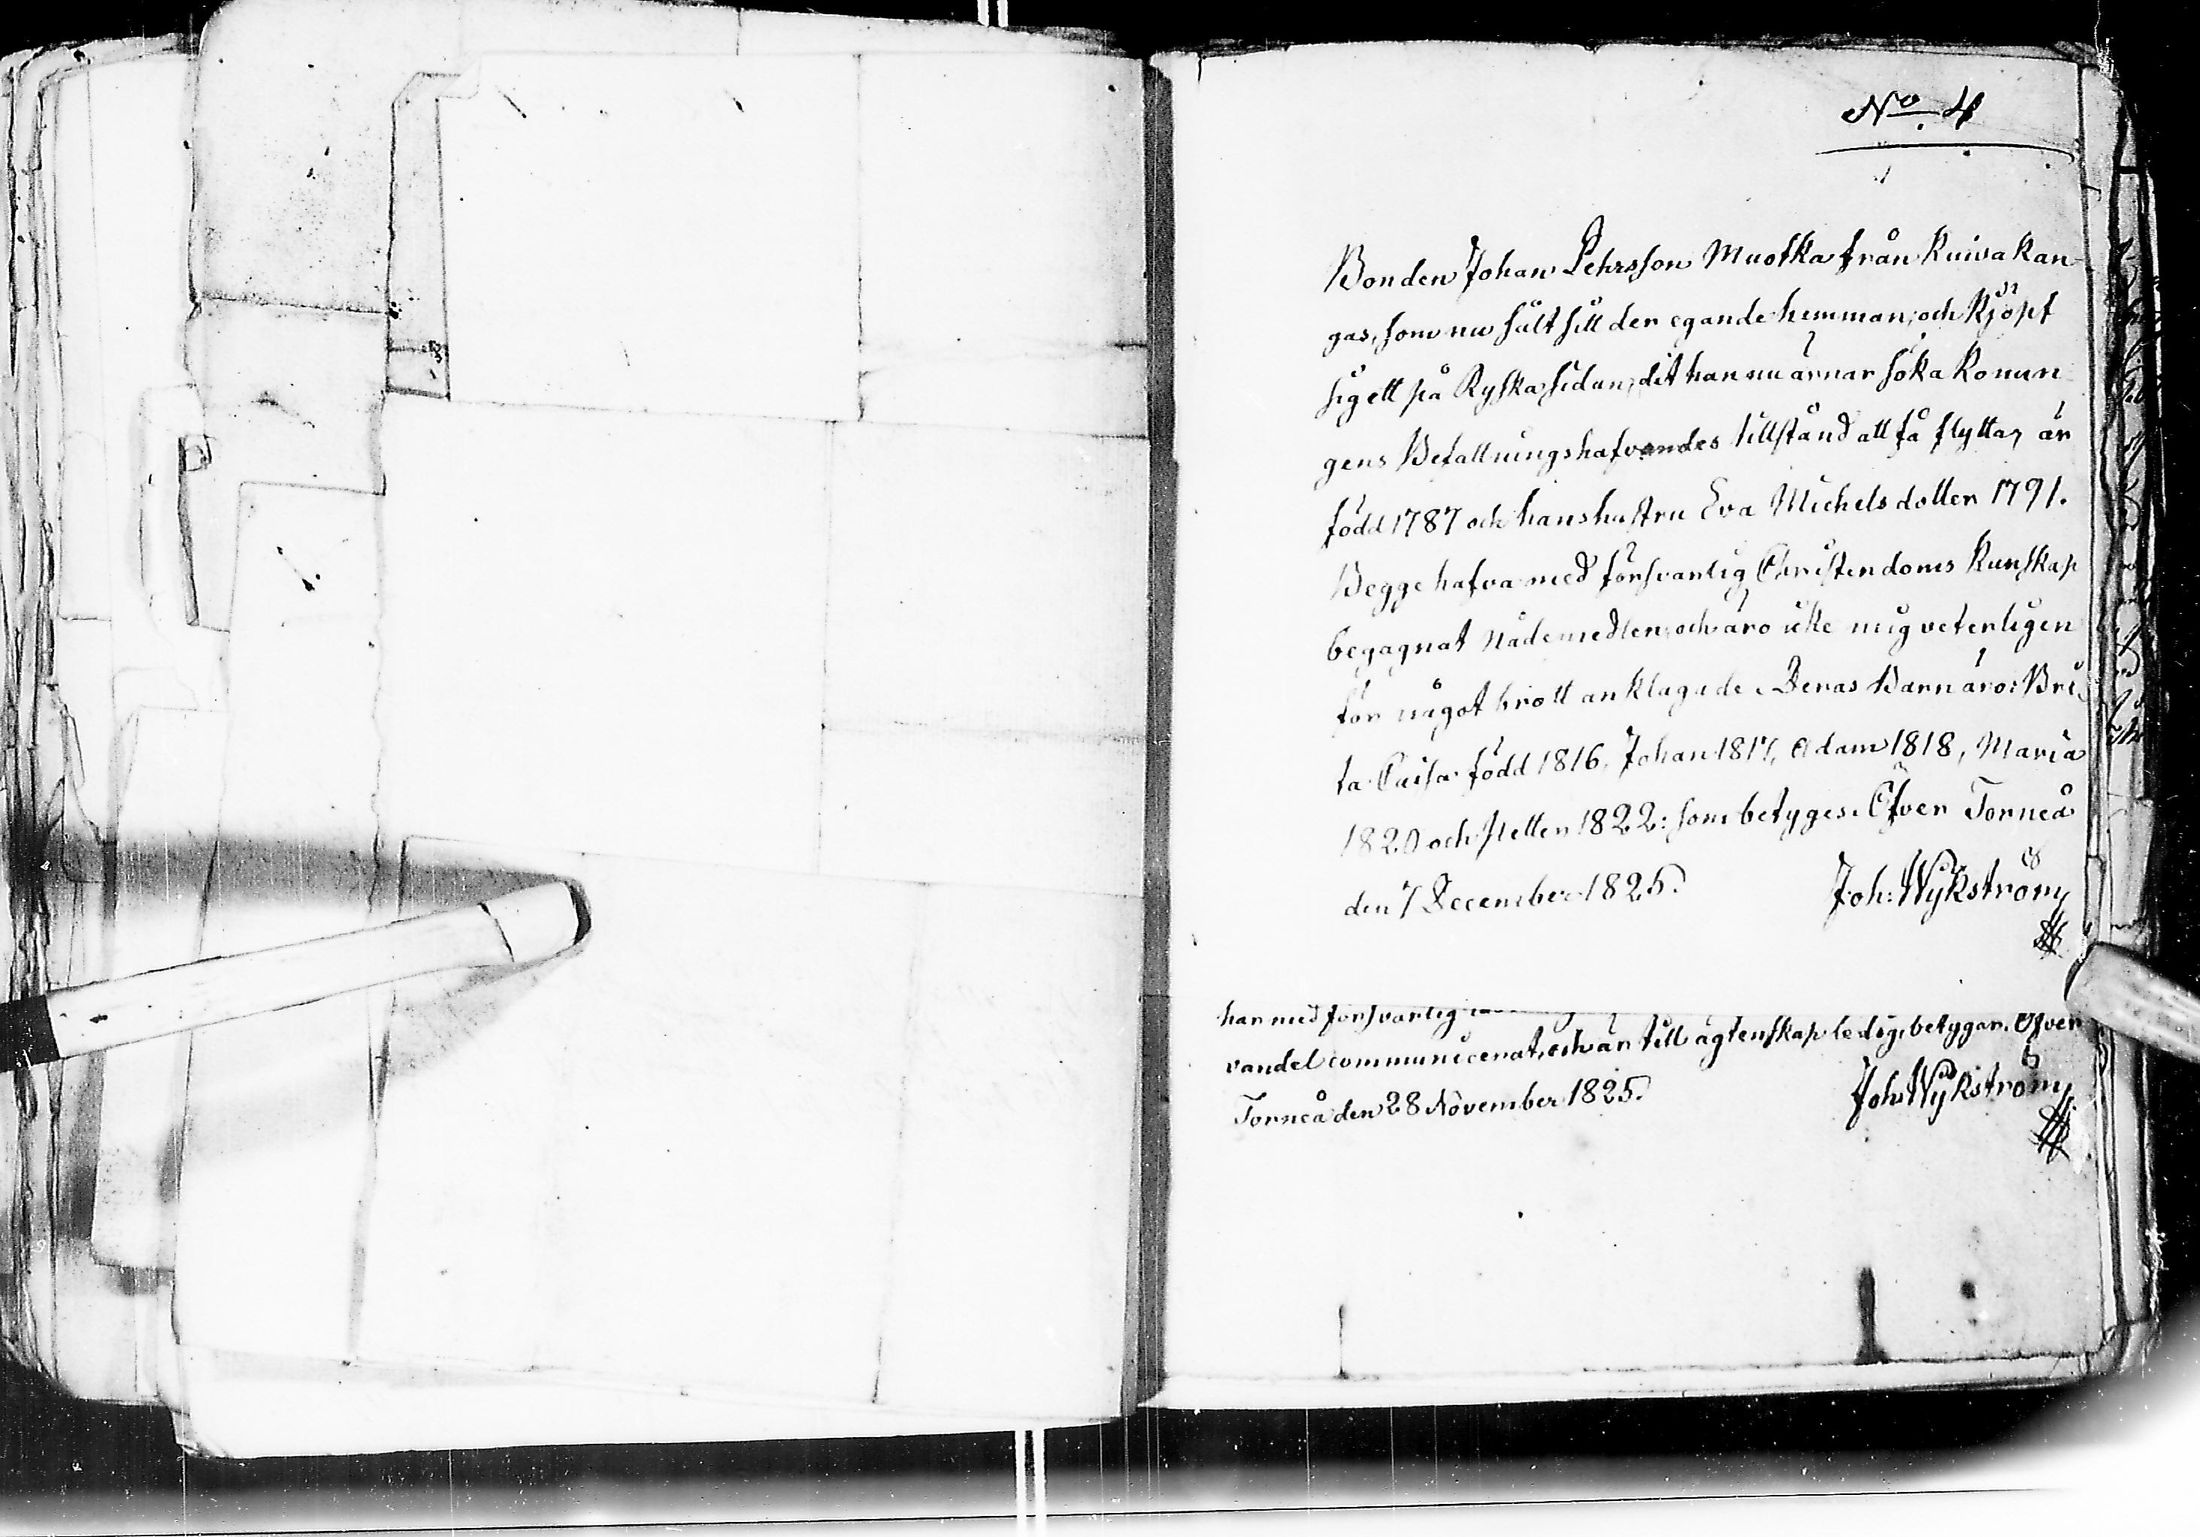 No 4
Bonden Johan Pehrsson Muotka från Kuivakan-
gas, som nu sålt sitt der egande hemman, och Kjöpt
sig ett på Ryska sidan, dit han nu ärnar söka Konun-
gens Befallningshafvandes tillstånd att få flytta, är
född 1787 och hans hustru Eva Michelsdotter 1791.
Begge hafva med försvarlig Christendoms Kunskap
begagnat nådemedlen, och äro icke mig veterligen
för något brott anklagade. Deras Barn äro: Bri-
ta Caisa född 1816, Johan 1817, Adam 1818, Maria
1820 och Petter 1822: som betyges. Öfver Torneå
den 7 December 1825. Joh: Wykström
han med försvarlig
vandel communicerat, och är till ägtenskap ledig, betygar. Öfver
Torneå den 28 November 1825. Joh: Wykström